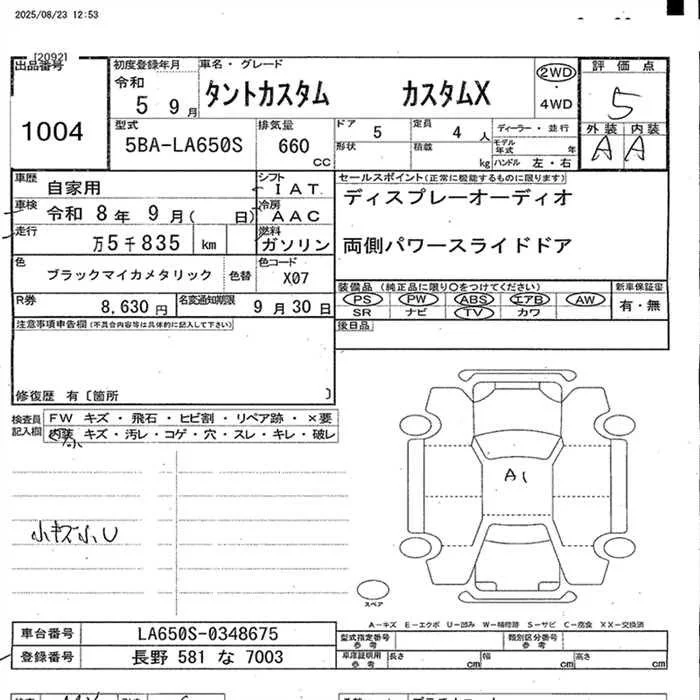 2025/08/23 12:53
[2092]
出品番号
1004
初度登録年月
令和
5 9月
車名・グレード
タントカスタム カスタムX
2WD
・
4WD
評価点
5
外装 内装
A A
型式
5BA-LA650S
排気量
660
CC
ドア
5
定員
4 人
形状
積載
kg
ディーラー・並行
モデル年式 年
ハンドル 左・右
車歴
自家用
シフト
IAT
車検
令和 8年 9月( 日)
冷房
AAC
走行
万5千835 km
燃料
ガソリン
色
ブラックマイカメタリック
色替
色コード
X07
R券
8,630円
名変通知期限
9月30日
セールスポイント(正常に機能するものに限ります)
ディスプレーオーディオ
両側パワースライドドア
装備品 (純正品に限り○をつけてください)
PS PW ABS エアB AW
SR ナビ TV カワ
新車保証書
有・無
後日品
注意事項申告欄(不具合内容等は具体的に記入して下さい)
修復歴 有〔箇所 〕
検査員
記入欄
FW キズ・飛石・ヒビ割・リペア跡・×要
内装 キズ・汚レ・コゲ・穴・スレ・キレ・破レ
小キズ小U
A1
スペア
A-キズ E-エクボ U-凹み W-補修跡 S-サビ C-腐食 XX-交換済
車台番号
LA650S-0348675
登録番号
長野 581 な 7003
型式指定番号
参考
類別区分番号
参考
車庫証明用
参考
長さ cm
幅 cm
高さ cm